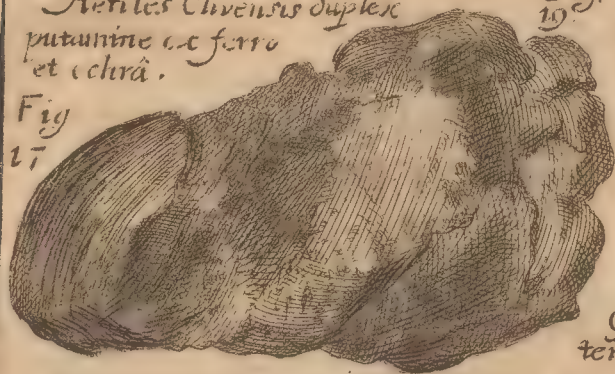 Aetites Clivensis duplex
putamine ex ferro
et ochrâ.
Fig
17
19
ter